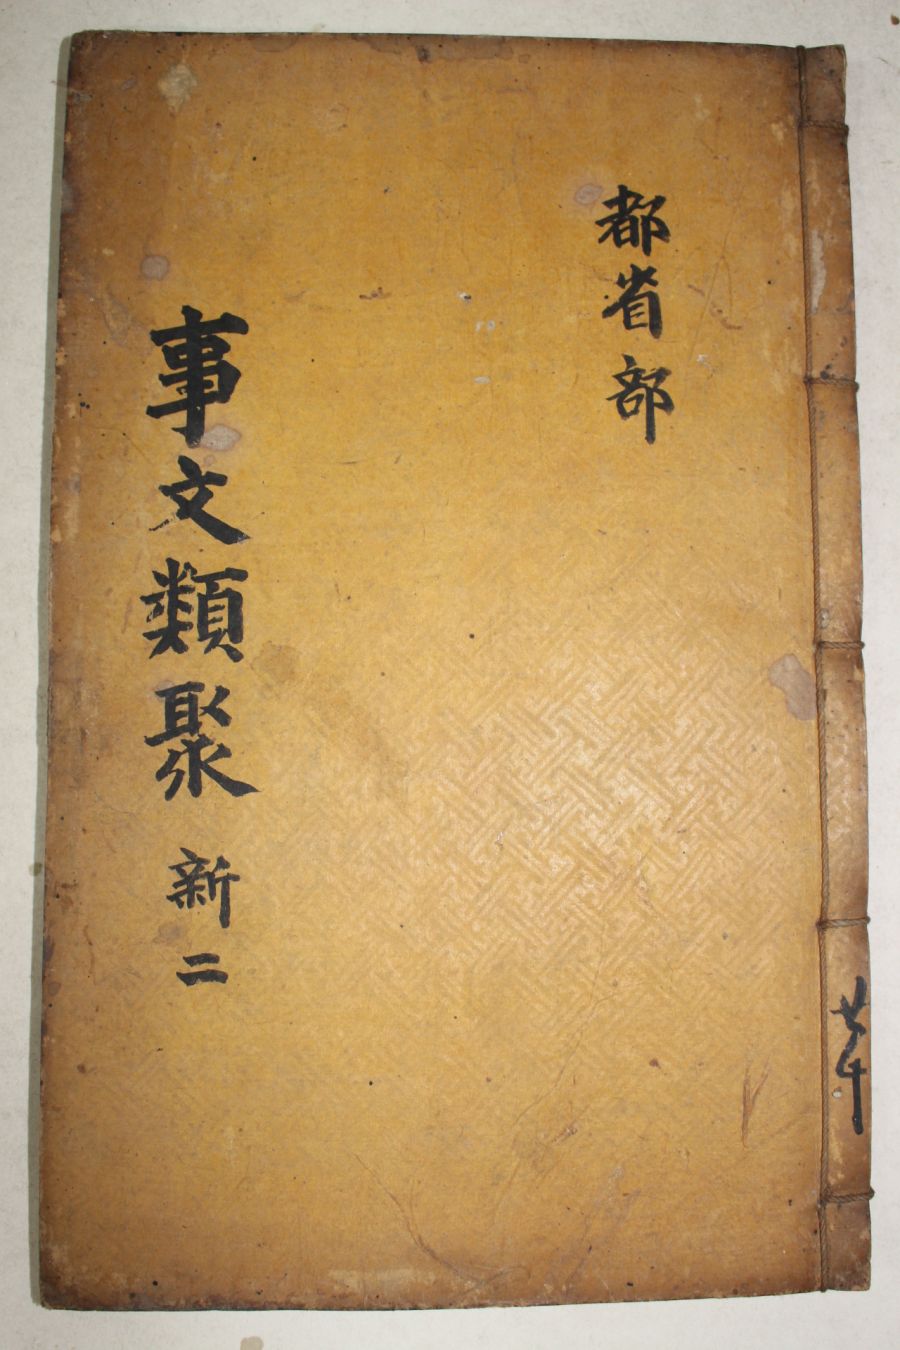 都省部
事文類聚 新二